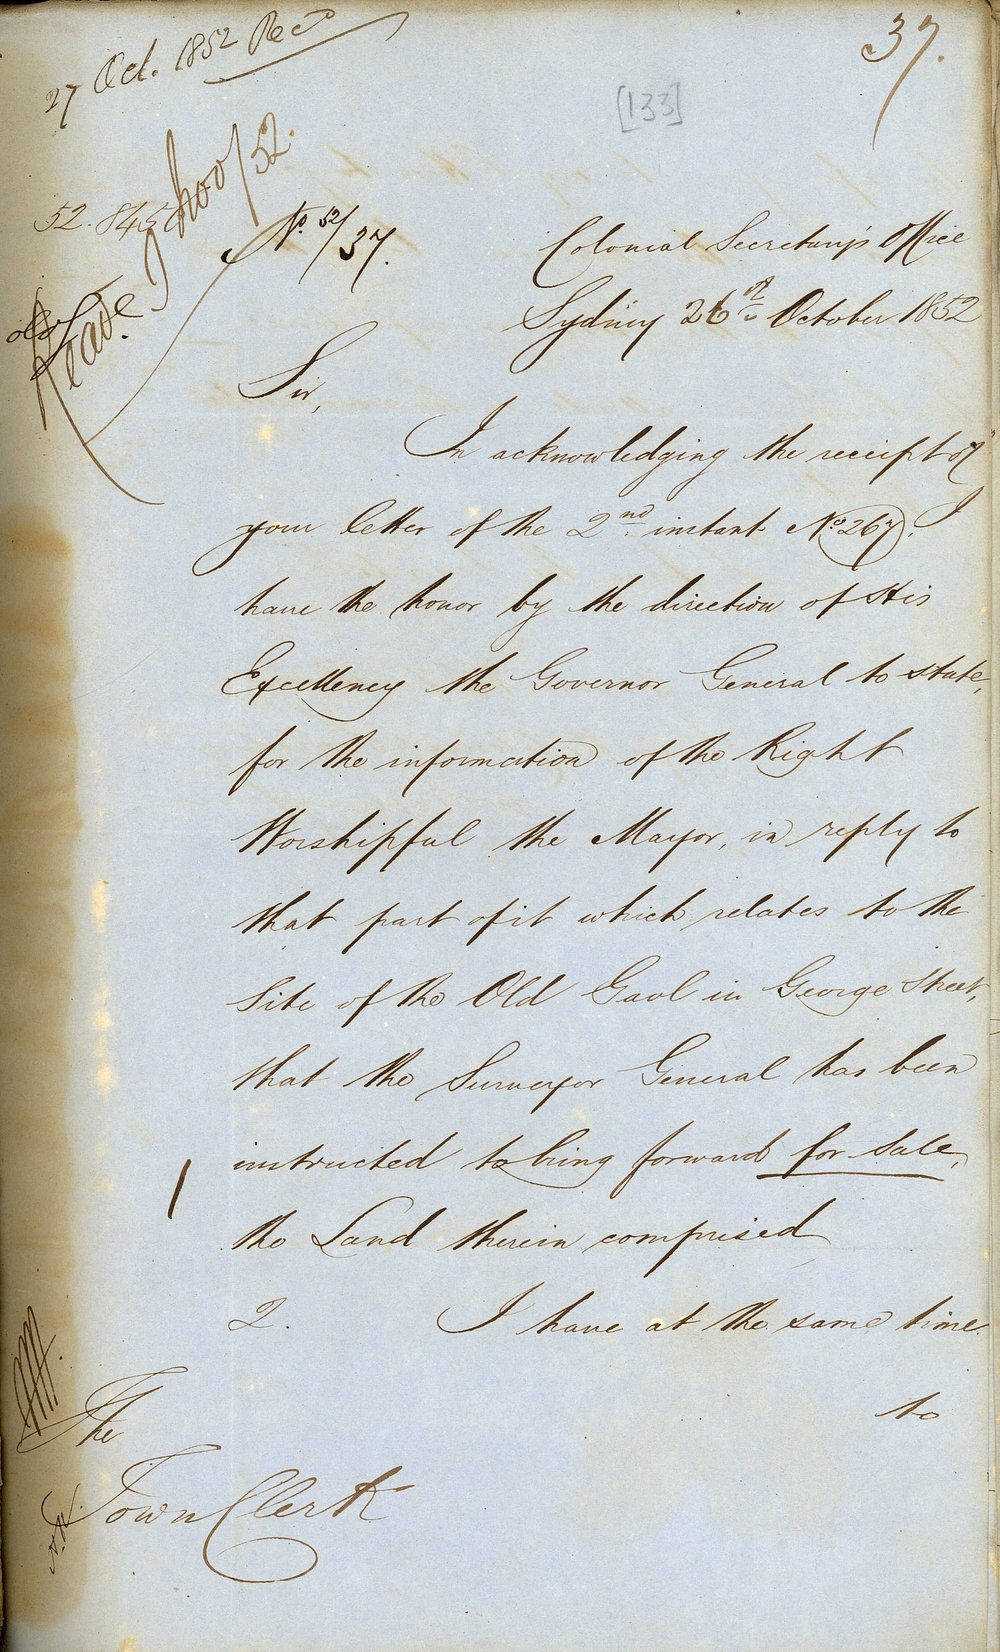 27 Oct. 1852 Recd
37.
[133]
52.845
Nov/52.
No. 52/37.
Colonial Secretary's Office
Sydney 26th October 1852
Sir,
In acknowledging the receipt of
your letter of the 2nd instant No. 267, I
have the honor by the direction of His
Excellency the Governor General to state,
for the information of the Right
Worshipful the Mayor, in reply to
that part of it which relates to the
Site of the Old Gaol in George Street,
that the Surveyor General has been
instructed to bring forward for sale,
the Land therein comprised
2. I have at the same time
to
The
Town Clerk